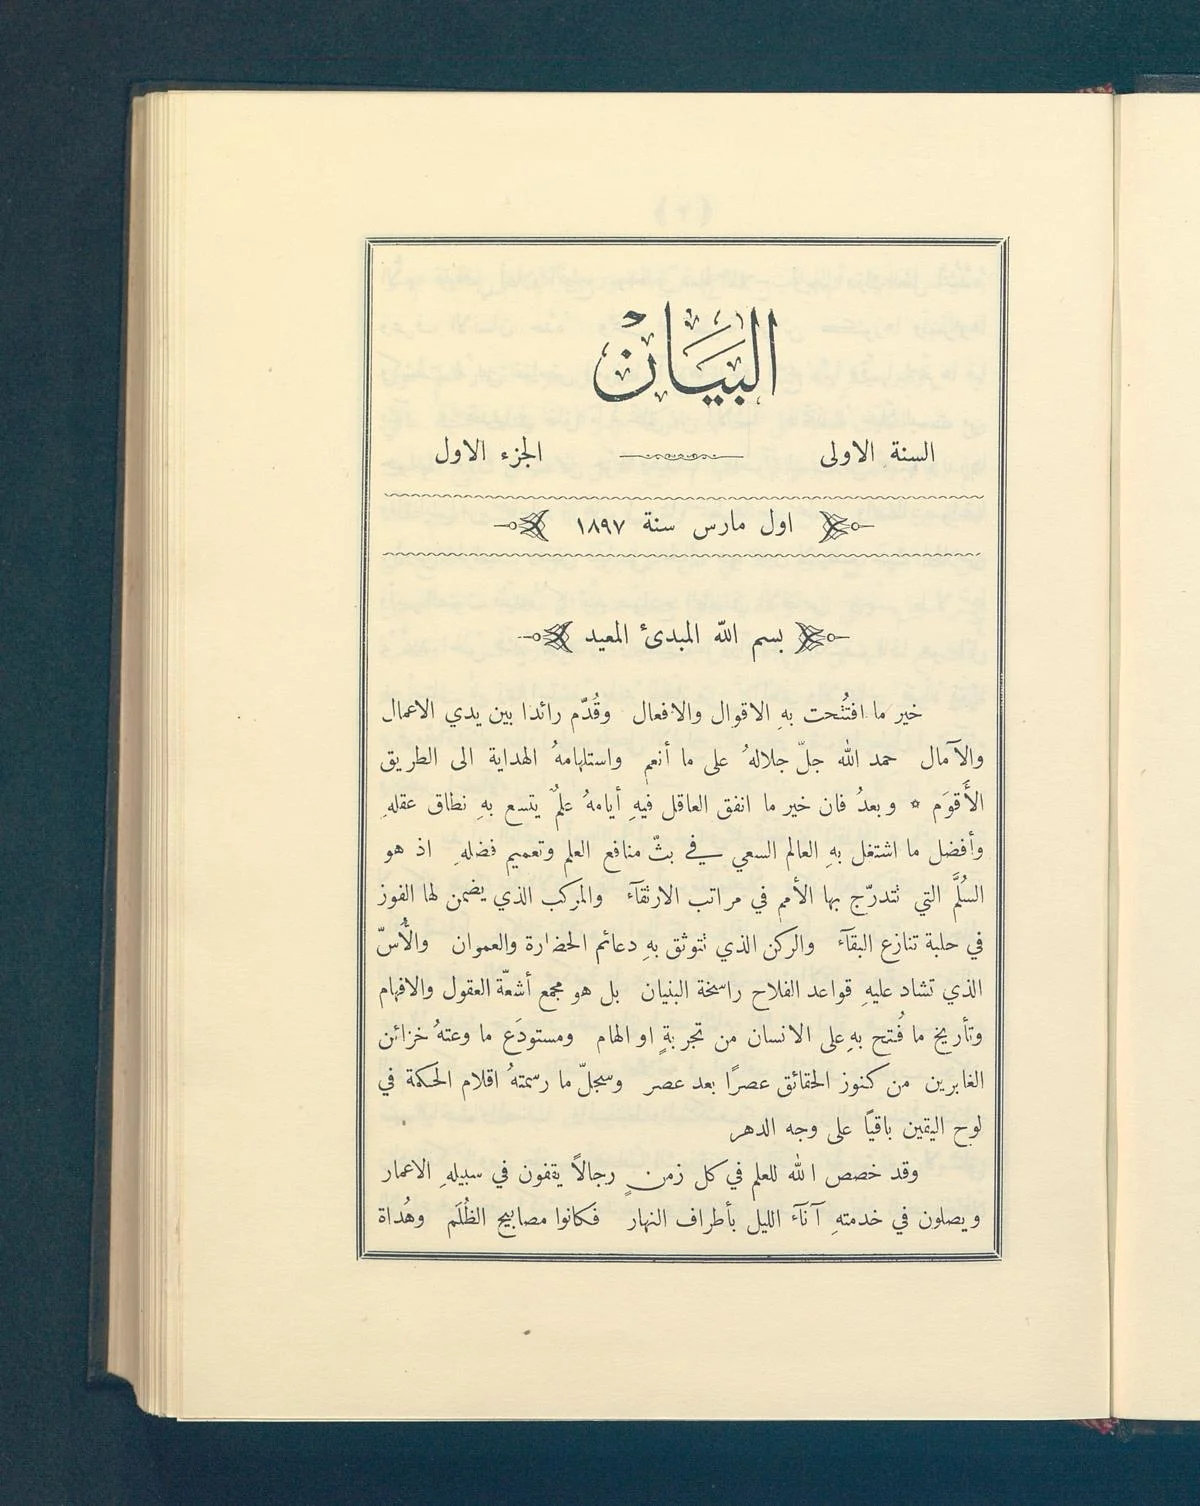 البَيَان
السنة الاولى الجزء الاول
اول مارس سنة ١٨٩٧
بسم الله المبدئ المعيد
خير ما افتُتحت بهِ الاقوال والافعال وقُدّم رائدا بين يدي الاعمال
والآمال حمد الله جلّ جلالهُ على ما أنعم واستلهامهُ الهداية الى الطريق
الأَقوَم * وبعدُ فان خير ما انفق العاقل فيهِ أيامهُ علمٌ يتسع بهِ نطاق عقلهِ
وأفضل ما اشتغل بهِ العالم السعي في بثّ منافع العلم وتعميم فضلهِ اذ هو
السُلَّم التي تتدرّج بها الأمم في مراتب الارتقآء والمركب الذي يضمن لها الفوز
في حلبة تنازع البقآء والركن الذي تتوثق بهِ دعائم الحضارة والعموان والأُسّ
الذي تشاد عليهِ قواعد الفلاح راسخة البنيان بل هو مجمع أشعّة العقول والافهام
وتأريخ ما فُتح بهِ على الانسان من تجربةٍ او الهام ومستودَع ما وعتهُ خزائن
الغابرين من كنوز الحقائق عصرًا بعد عصر وسجلّ ما رسمتهُ اقلام الحكمة في
لوح اليقين باقيًا على وجه الدهر
وقد خصص الله للعلم في كل زمنٍ رجالاً يقفون في سبيلهِ الاعمار
ويصلون في خدمتهِ آنآء الليل بأطراف النهار فكانوا مصابيح الظُلَم وهُداة